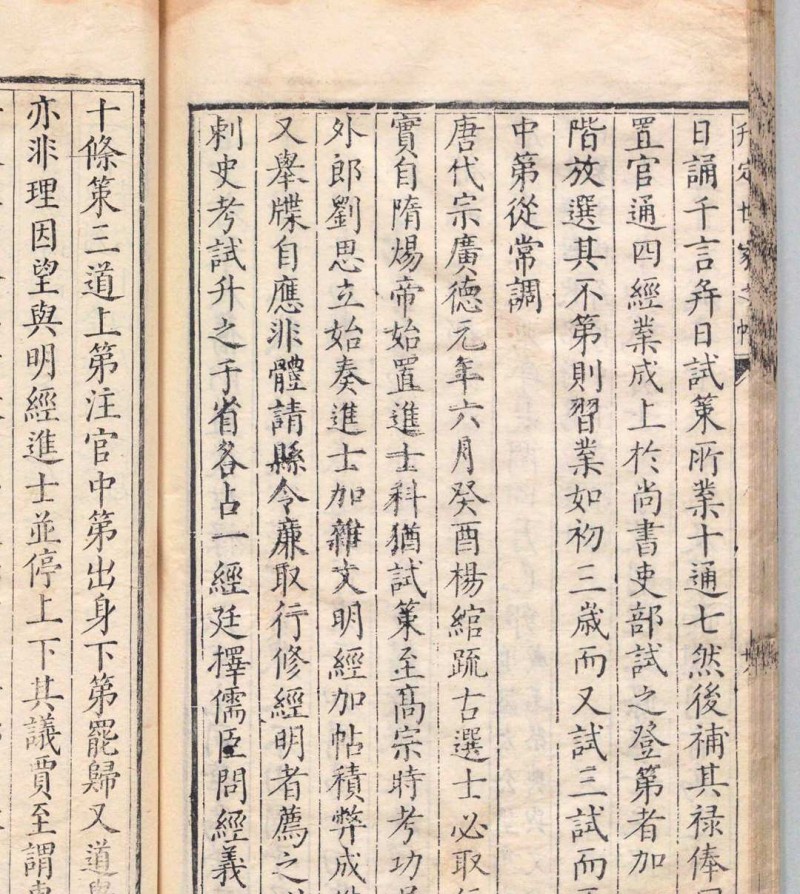 日誦千言弁日試策所業十通七然後補其祿俸
置官通四經業成上於尚書吏部試之登第者加
階放選其不第則習業如初三歲而又試三試而
中第從常調
唐代宗廣德元年六月癸酉楊綰疏古選士必取
實自隋煬帝始置進士科猶試策至高宗時考功
外郎劉思立始奏進士加雜文明經加帖積弊成
又舉牒自應非體請縣令廉取行修經明者薦之
刺史考試升之于省各占一經廷擇儒臣問經義
十條策三道上第注官中第出身下第罷歸又道
亦非理因望與明經進士並停上下其議賈至謂